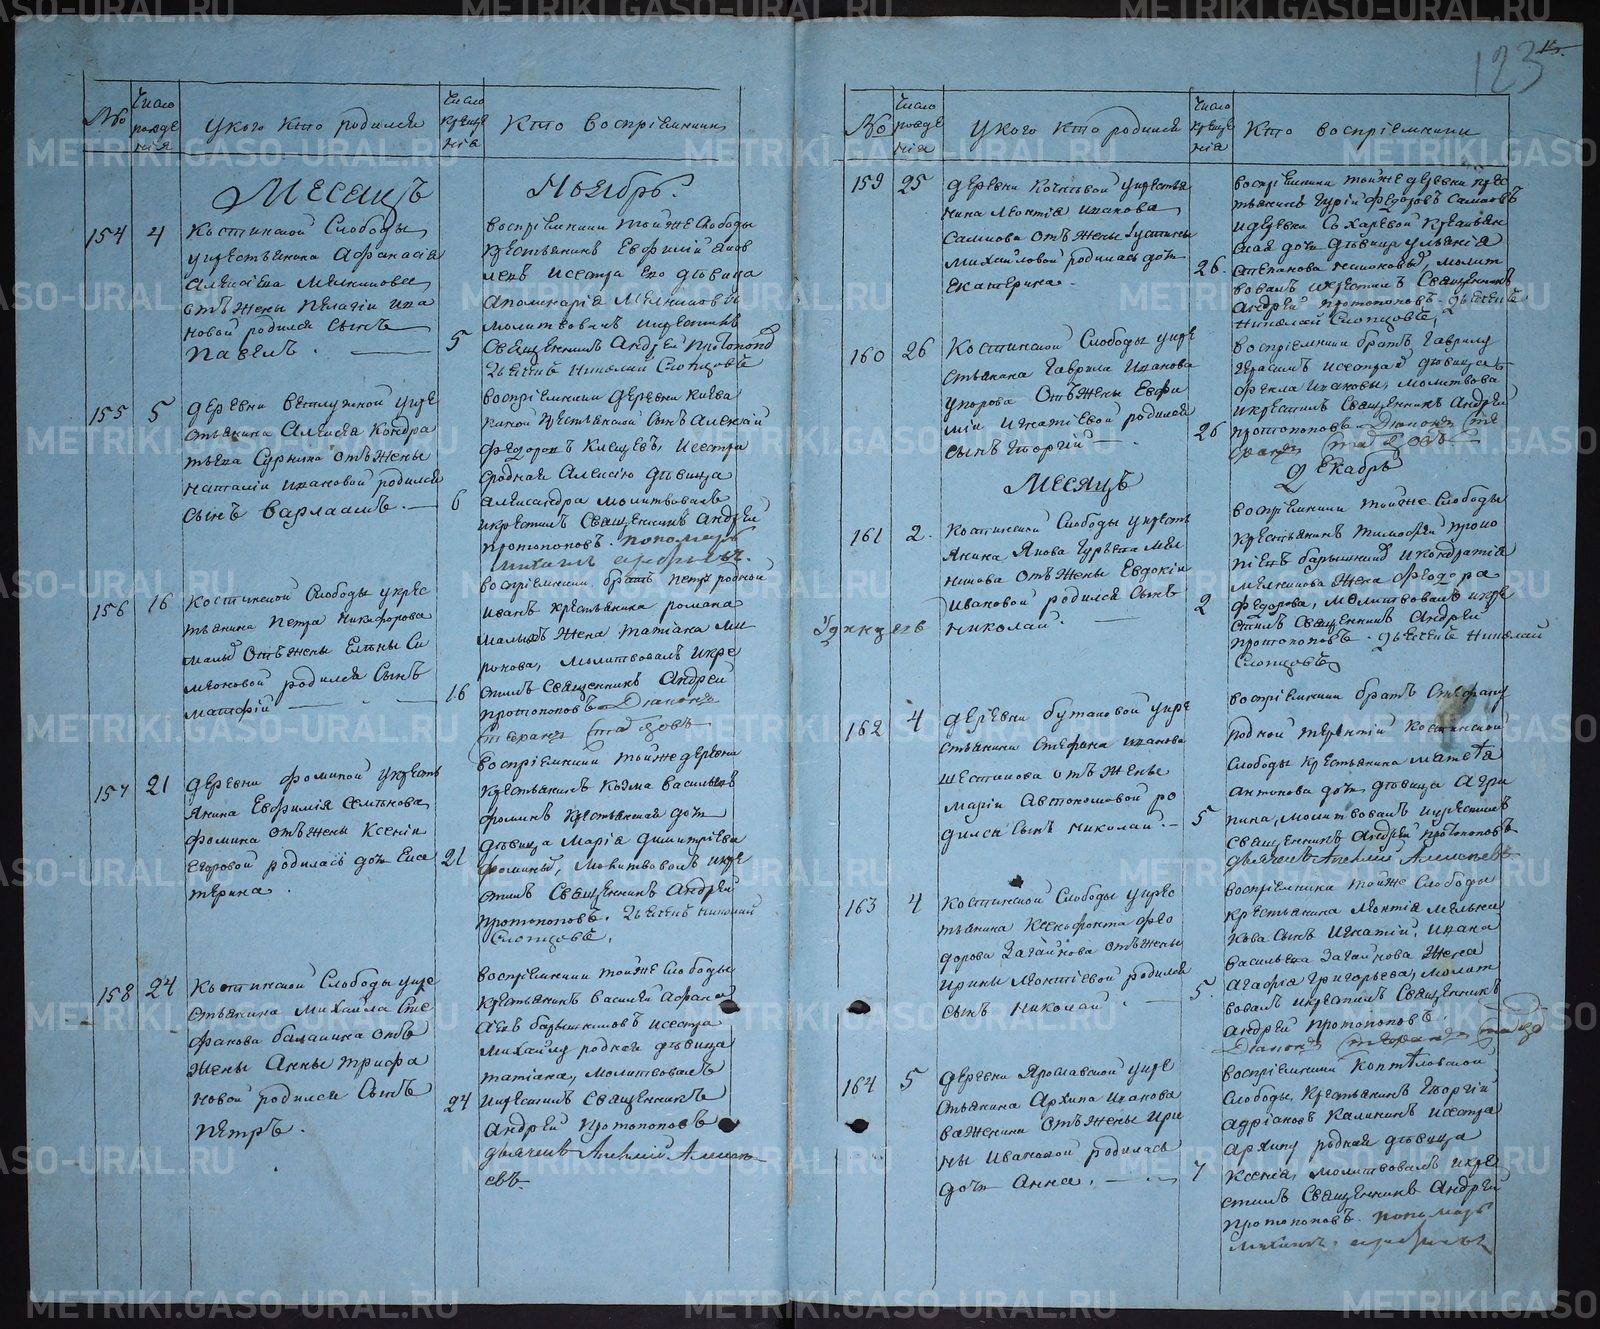 123
№
Число рожде нія
у кого кто родился
Число креще нія
Кто воспріемники
Месецъ Ноябрь
154 4
Костинской Слободы
у крестьянина Афанасія
Алексѣева Мелникова
отъ жены Пелагіи Ива
новой родился сынъ
Павелъ.
5
воспріемники тойже слободы
крестьянинъ Евфимій Яков
левъ и сестра его дѣвица
Аполинарія Мелниковы
молитвовалъ и крестилъ
Священникъ Андрей Протопопов
Дьячекъ Николай Слопцовъ
155 5
деревни Ветлужной у кре
стьянина Алексея Кондра
тьева Суркина отъ жены
Наталіи Ивановой родился
сынъ Варлаамъ.
6
воспріемники деревни
крестьянской сынъ Алексѣй
Федоровъ и сестра
сродная Алексѣю дѣвица
Александра молитвовалъ
и крестилъ Священникъ Андрей
Протопоповъ. пономарь
Михаилъ
156 16
Костинской Слободы у крес
тьянина Петра Никифорова
Малых отъ жены Елены Си
меоновой родился сынъ
Матфій
16
воспріемники братъ Петру родной
Иванъ крестьянина Романа
Малыхъ жена Татіана Ми
ронова, молитвовалъ и кре
стилъ Священникъ Андрей
Протопоповъ Діаконъ
Стефанъ
157 21
деревни Фоминой у кресть
янина Евфимія Семенова
Фомина отъ жены Ксеніи
Егоровой родилась дочь Ека
терина.
21
воспріемники тойже деревни
крестьянинъ Козма Васильевъ
Фоминъ крестьянская дочь
дѣвица Марія Димитріева
Фомины, молитвовалъ и кре
стилъ Священникъ Андрей
Протопоповъ. Дьячекъ Николай
Слопцовъ.
158 24
Костинской Слободы у кре
стьянина Михаила Сте
фанова Балакина отъ
жены Анны Трифа
новой родился сынъ
Петръ.
24
воспріемники тойже слободы
крестьянинъ Василей Афана
сьевъ Барышниковъ и сестра
Михайлу родная дѣвица
Татіана, молитвовалъ
и крестилъ Священникъ
Андрей Протопоповъ
дьячекъ Алексей Алексѣ
евъ.
№
Число рожде нія
у кого кто родился
Число креще нія
Кто воспріемники
159 25
деревни Кочневой у крестья
нина Леонтія Иванова
Самкова отъ жены Іустины
Михайловой родилась дочь
Екатерина.
26.
воспріемники тойже деревни крес
тьянинъ Гурій Федоровъ Самковъ
и деревни Сохаревой крестьян
ская дочь дѣвица Ульянія
Степанова, молит
вовалъ и крестилъ Священникъ
Андрей Протопоповъ. Дьячекъ
Николай Слопцовъ
160 26
Костинской Слободы у кре
стьянина Гаврила Иванова
Упорова отъ жены Евфи
міи Игнатіевой родился
сынъ Георгій
26
воспріемники братъ Гаврилу
Герасимъ и сестра дѣвица
Фекла Ивановы, молитвова
и крестилъ Священникъ Андрей
Протопоповъ Діаконъ Сте
фанъ
Месяцъ Декабрь
161 2.
Костинской Слободы у кресть
янина Якова Гурьева Мел
никова отъ жены Евдокіи
Ивановой родился сынъ
Николай.
2
воспріемники тойже слободы
крестьянинъ Тимофей Проко
піевъ Барышников и Кондратія
Мелникова жена Федора
Федорова, молитвовалъ и кре
стилъ Священникъ Андрей
Протопоповъ. Дьячекъ Николай
Слопцовъ
162 4
деревни Бутаковой у кре
стьянина Стефана Иванова
Шестакова отъ жены
Маріи Автономовой ро
дился сынъ Николай
5
воспріемники братъ Стефану
родной Терентій Костинской
слободы крестьянина Матѳѣа
Антонова дочь дѣвица Агри
пина, молитвовалъ и крестилъ
Священникъ Андрей Протопоповъ
дьячекъ Алексѣй Алексѣевъ
163 4
Костинской Слободы у крес
тьянина Ксенофонта Фео
дорова Загайнова отъ жены
Ирины Леонтіевой родился
сынъ Николай
5.
воспріемники тойже слободы
крестьянина Леонтія Мельни
кова сынъ Игнатій. Ивана
Васильева Загайнова жена
Агафіа Григорьева, молит
вовалъ и крестилъ Священникъ
Андрей Протопоповъ.
Діаконъ Стефанъ
164 5
деревни Ярославской у кре
стьянина Архипа Иванова
Важенина отъ жены Ири
ны Ивановой родилась
дочь Анна.
7
воспріемники Коптеловской
слободы крестьянинъ Георгій
Адріановъ Калининъ и сестра
Архипу родная дѣвица
Ксенія, молитвовалъ и кре
стилъ Священникъ Андрей
Протопоповъ. пономарь
Михаилъ
METRIKI.GASO-URAL.RU